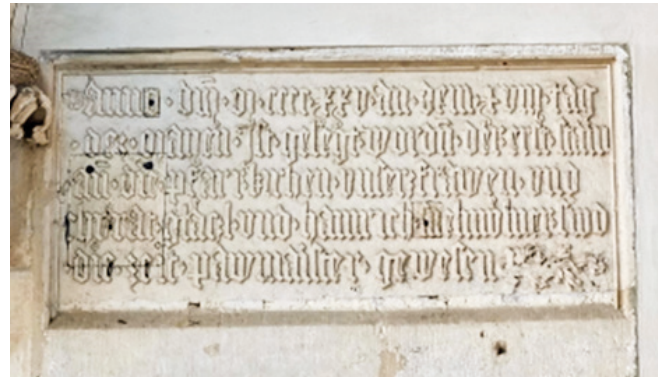 anno · dnj · m · cccc · xxv · an · dem · xvij · tag
· des · maien · ist · gelegt · wordn · der erst stain
an · die · pfarrkirchen · vnser frawen · vnd
vnd · hainrich
die · zeit · pawmaister · gewesen ·